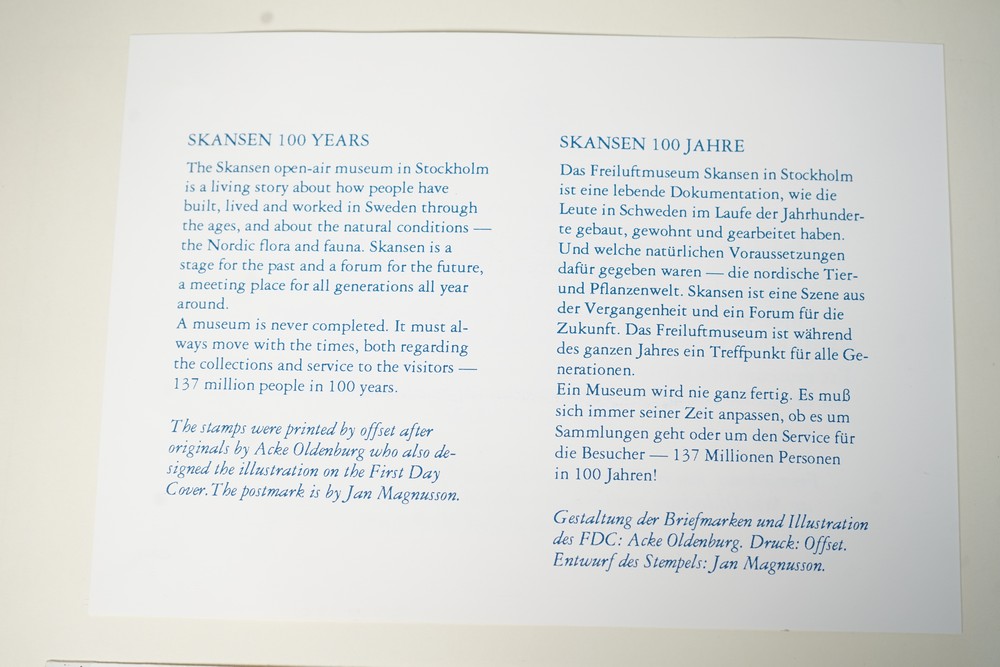 SKANSEN 100 YEARS
The Skansen open-air museum in Stockholm
is a living story about how people have
built, lived and worked in Sweden through
the ages, and about the natural conditions —
the Nordic flora and fauna. Skansen is a
stage for the past and a forum for the future,
a meeting place for all generations all year
around.
A museum is never completed. It must al-
ways move with the times, both regarding
the collections and service to the visitors —
137 million people in 100 years.
The stamps were printed by offset after
originals by Acke Oldenburg who also de-
signed the illustration on the First Day
Cover. The postmark is by Jan Magnusson.
SKANSEN 100 JAHRE
Das Freiluftmuseum Skansen in Stockholm
ist eine lebende Dokumentation, wie die
Leute in Schweden im Laufe der Jahrhunder-
te gebaut, gewohnt und gearbeitet haben.
Und welche natürlichen Voraussetzungen
dafür gegeben waren — die nordische Tier-
und Pflanzenwelt. Skansen ist eine Szene aus
der Vergangenheit und ein Forum für die
Zukunft. Das Freiluftmuseum ist während
des ganzen Jahres ein Treffpunkt für alle Ge-
nerationen.
Ein Museum wird nie ganz fertig. Es muß
sich immer seiner Zeit anpassen, ob es um
Sammlungen geht oder um den Service für
die Besucher — 137 Millionen Personen
in 100 Jahren!
Gestaltung der Briefmarken und Illustration
des FDC: Acke Oldenburg. Druck: Offset.
Entwurf des Stempels: Jan Magnusson.